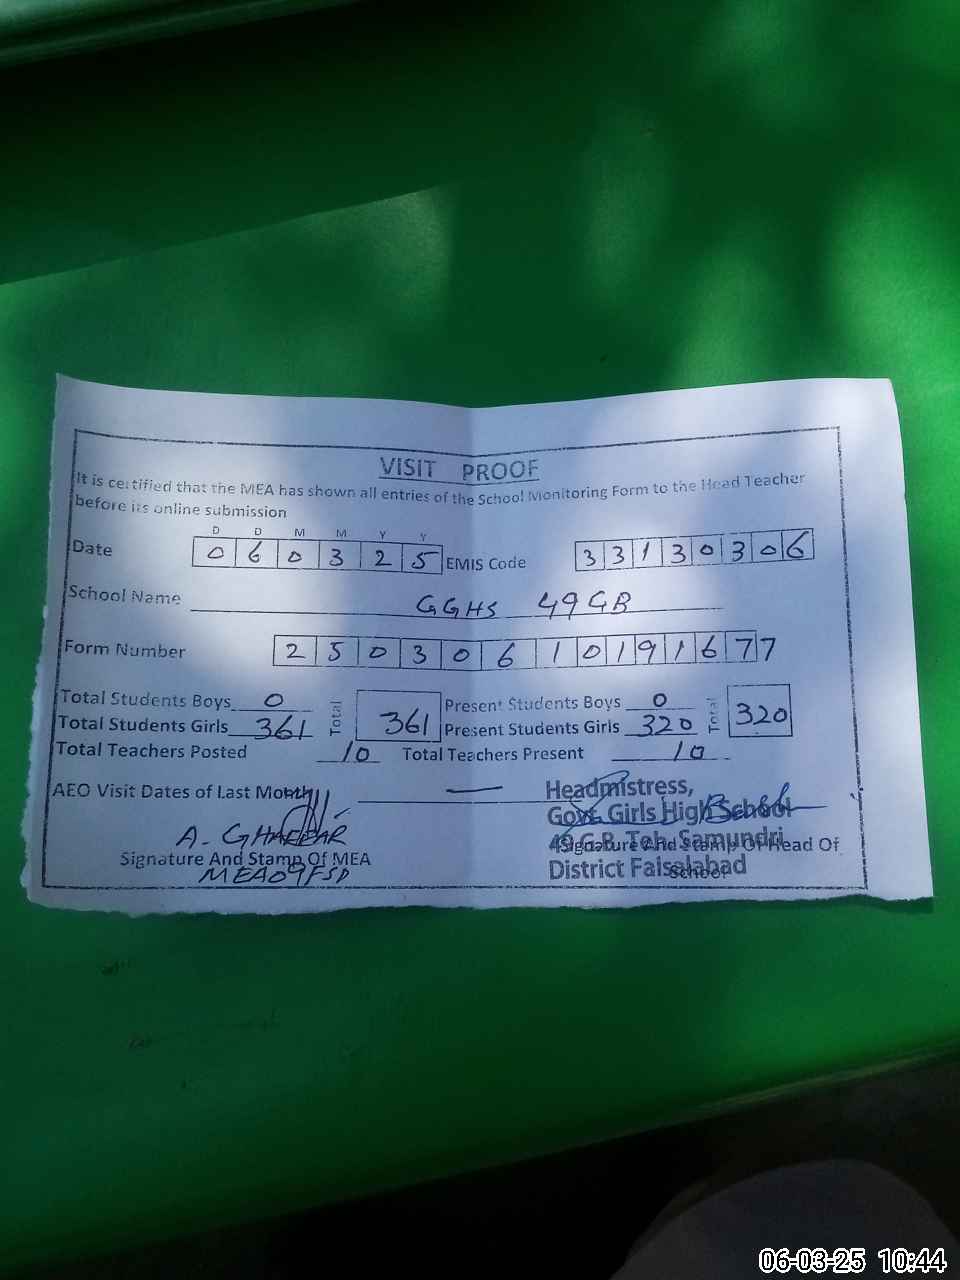 VISIT PROOF
It is certified that the MEA has shown all entries of the School Monitoring Form to the Head Teacher
before its online submission
D D M M Y Y
Date 0 6 0 3 2 5 EMIS Code 3 3 1 3 0 3 0 6
School Name GGHS 49 GB
Form Number 2 5 0 3 0 6 1 0 1 9 1 6 7 7
Total Students Boys 0 Total 361 Present Students Boys 0 Total 320
Total Students Girls 361 Present Students Girls 320
Total Teachers Posted 10 Total Teachers Present 10
AEO Visit Dates of Last Month —
Headmistress,
Govt. Girls High School
49 G.B. Teh. Samundri
District Faisalabad
A. GHAFFAR
Signature And Stamp Of MEA
MEA09FSD
Signature And Stamp Of Head Of
School
06-03-25 10:44